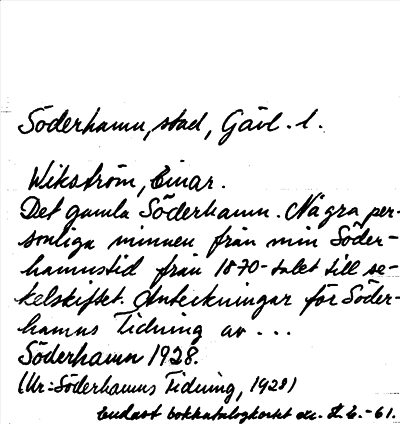 Söderhamn, stad, Gävl. l.
Wikström, Einar.
Det gamla Söderhamn. Några per-
sonliga minnen från min Söder-
hamnstid från 1870-talet till se-
kelskiftet. Anteckningar för Söder-
hamns Tidning av ...
Söderhamn 1928.
(Ur: Söderhamns Tidning, 1928)
endast bokkatalogkortet ex. -61.